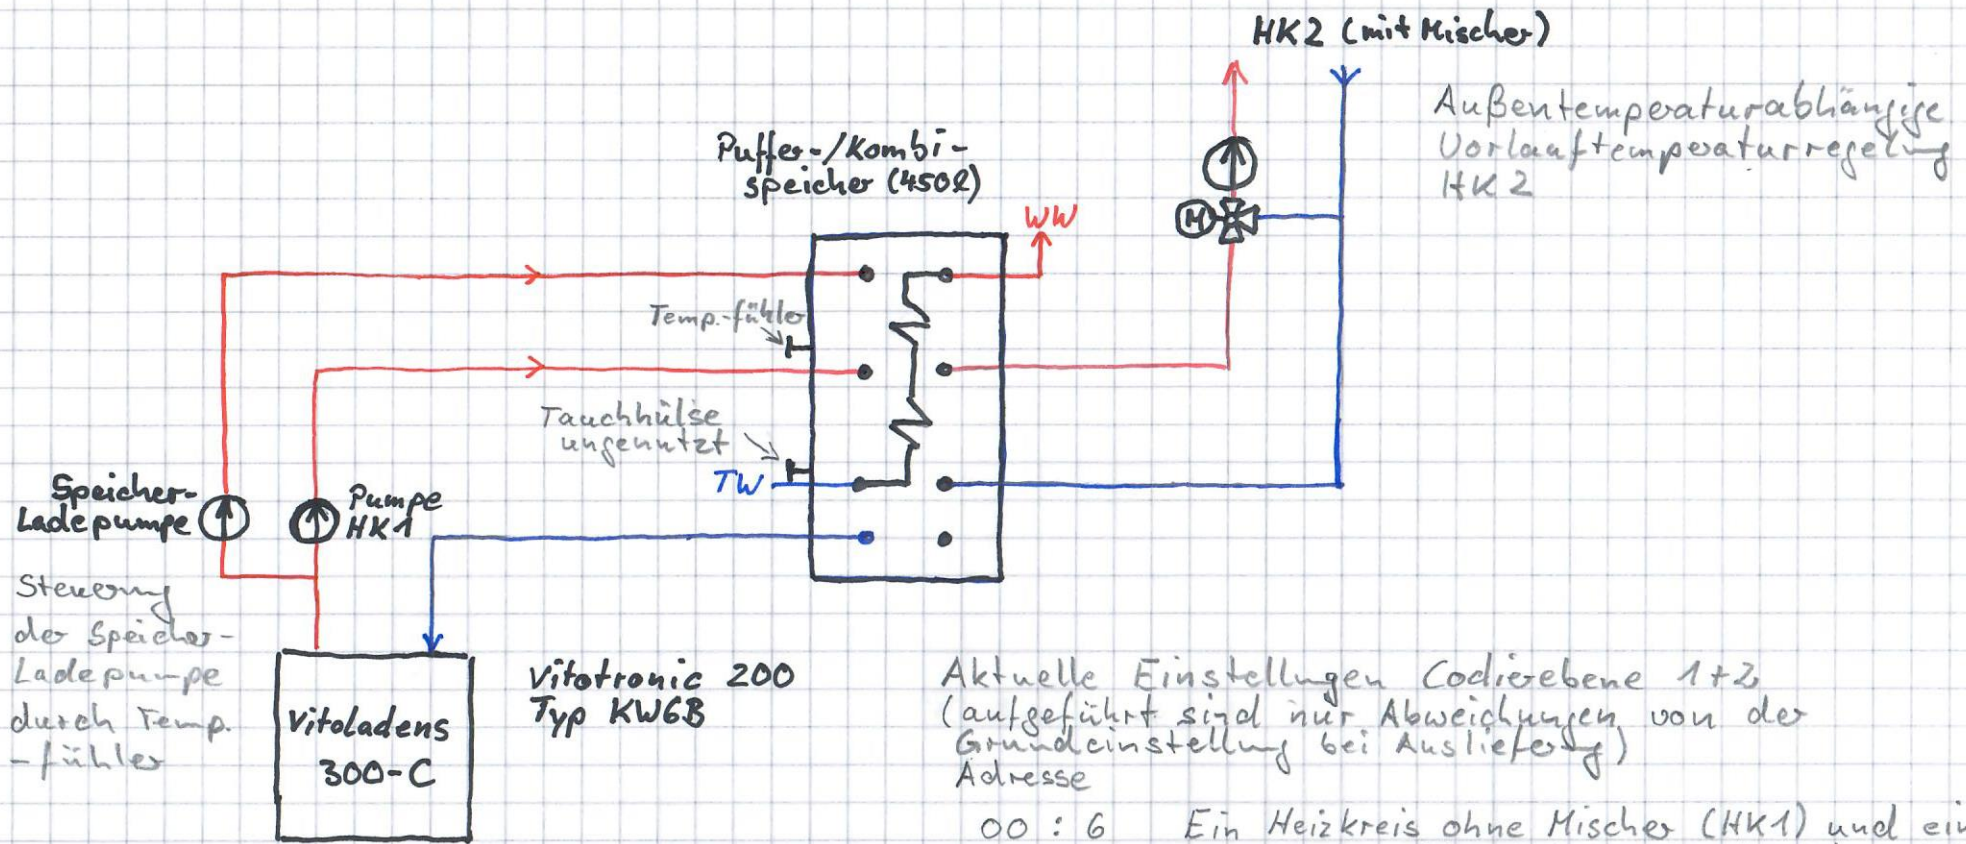 HK2 (mit Mischer)
Außentemperaturabhängige
Vorlauftemperaturregelung
HK2
Puffer-/Kombi-
speicher (450l)
WW
M
Temp.-fühler
Tauchhülse
ungenutzt
TW
Speicher-
Ladepumpe
Pumpe
HK1
Steuerung
der Speicher-
Ladepumpe
durch Temp.
-fühler
Vitoladens
300-C
Vitotronic 200
Typ KW6B
Aktuelle Einstellungen Codierebene 1+2
(aufgeführt sind nur Abweichungen von der
Grundeinstellung bei Auslieferung)
Adresse
00 : 6 Ein Heizkreis ohne Mischer (HK1) und ein